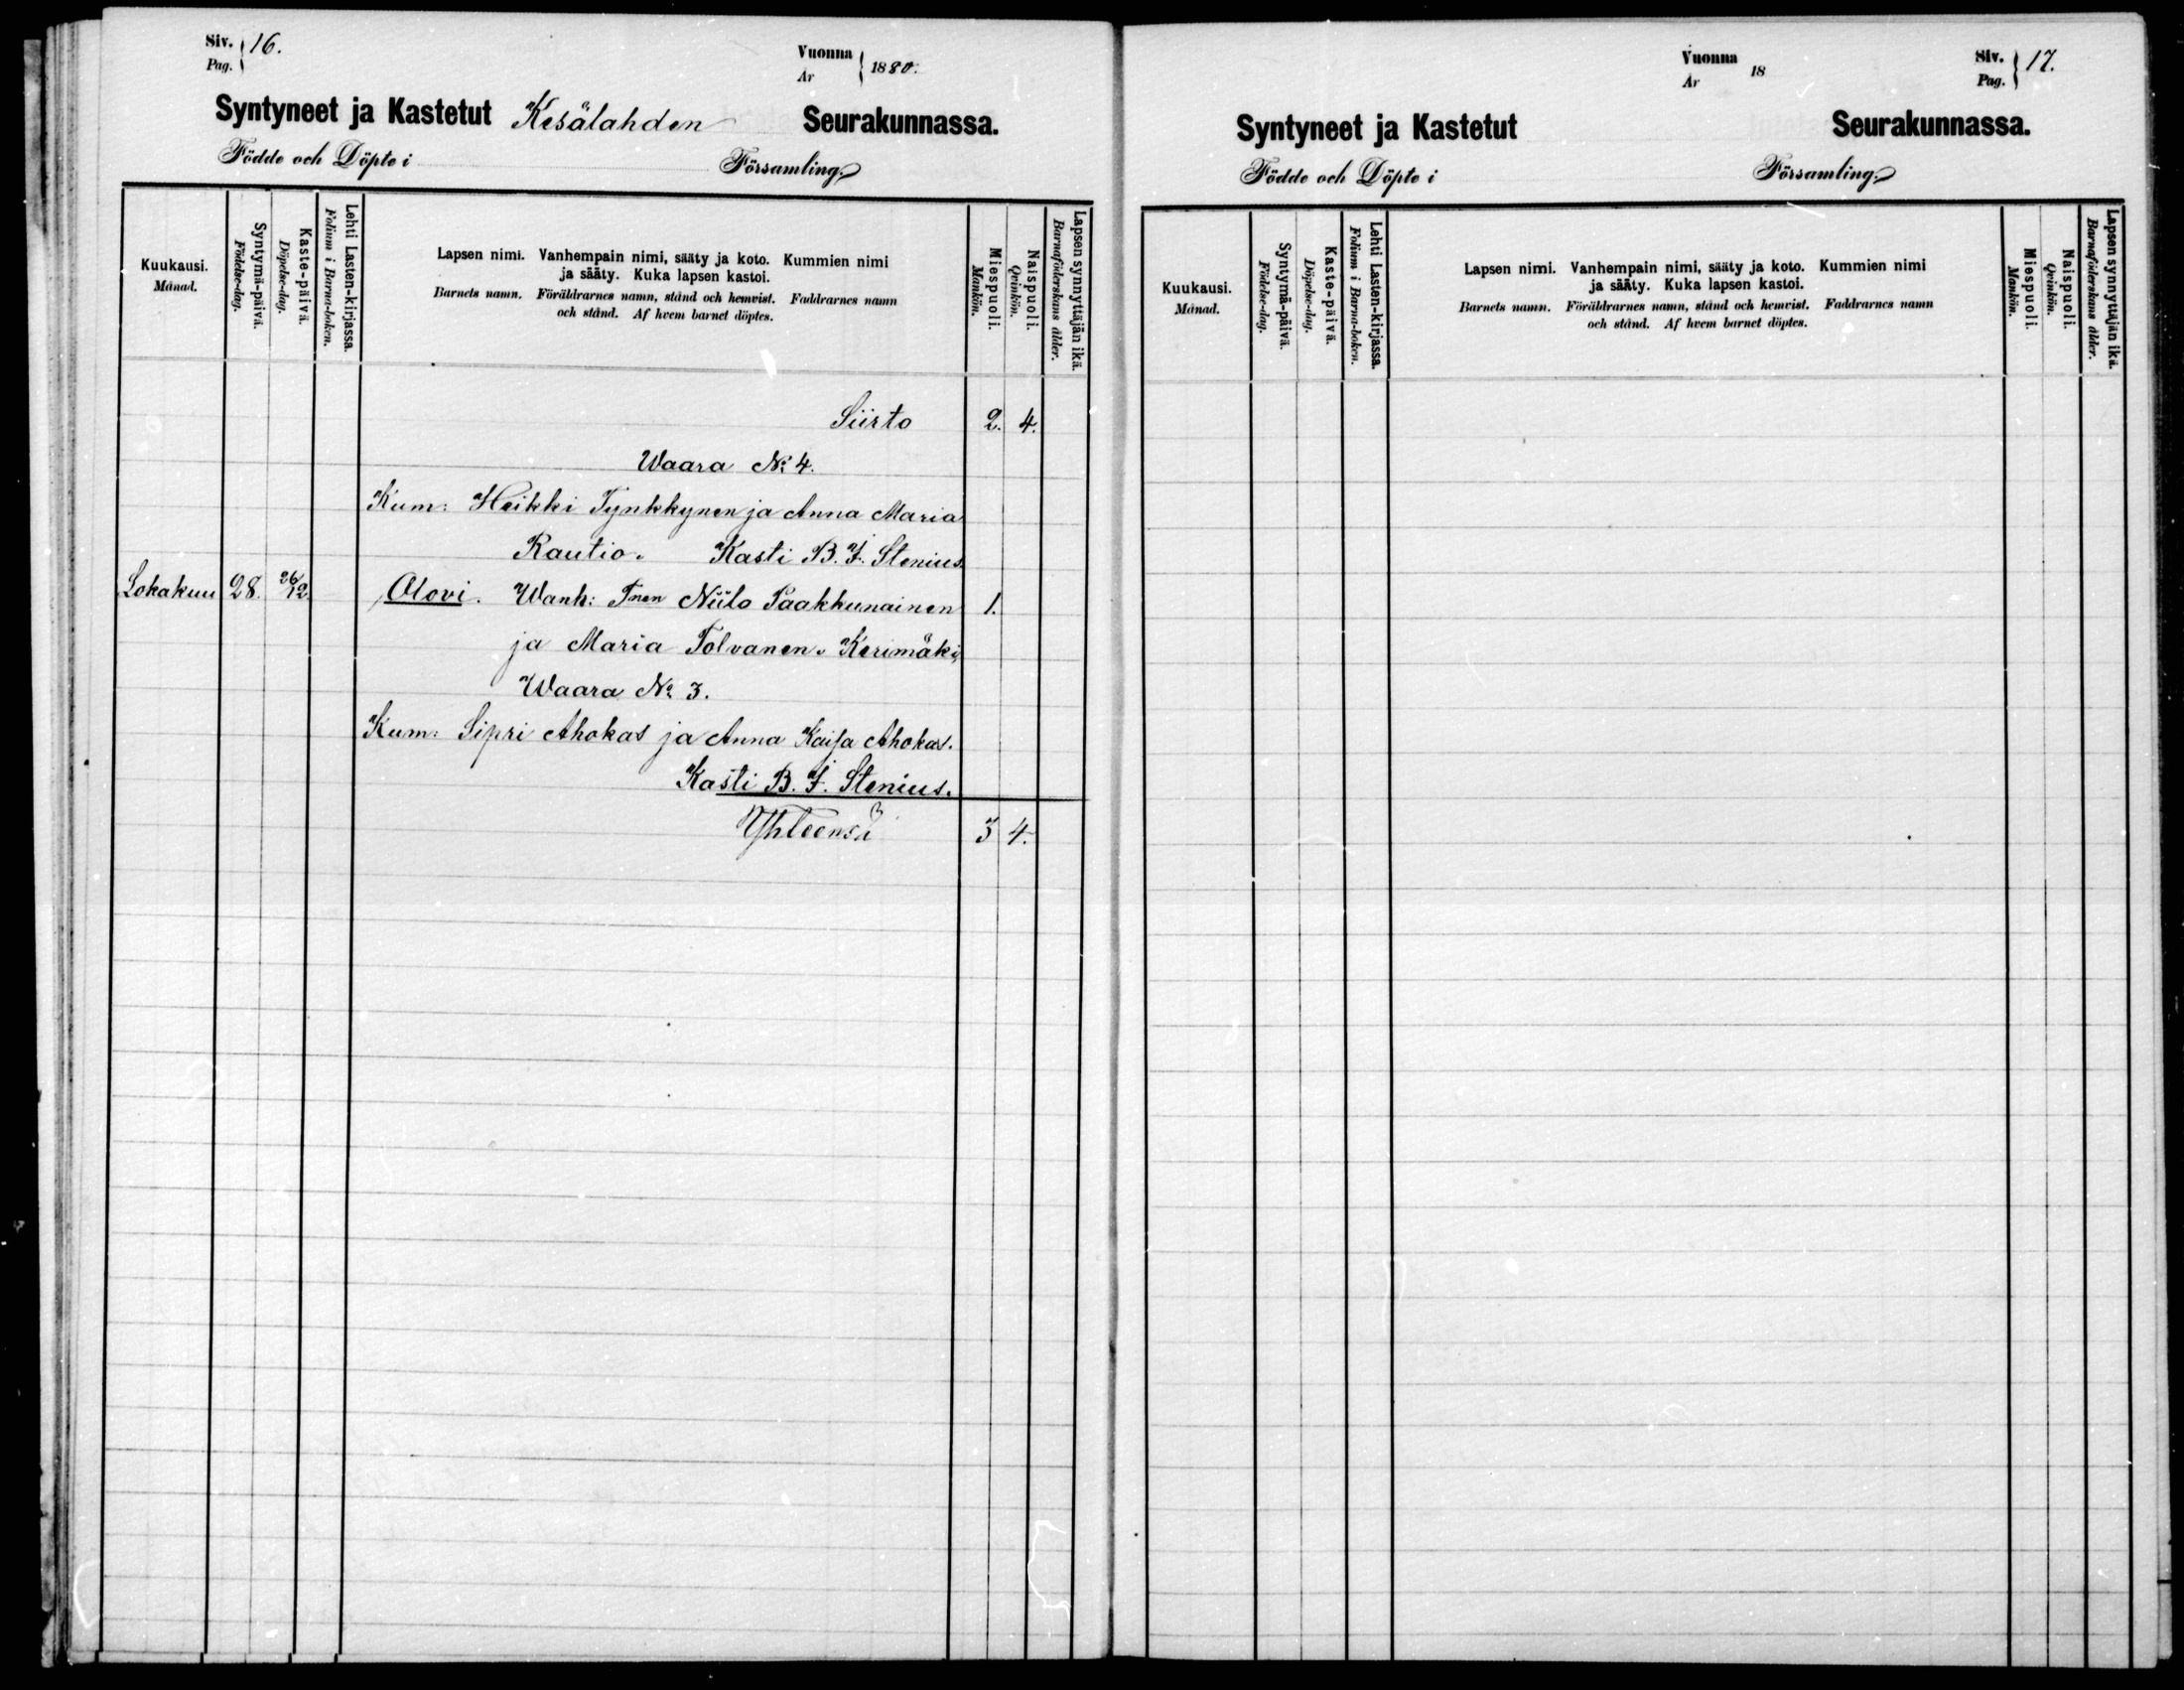 Siv. Pag. 16.
Vuonna År 1880.
Syntyneet ja Kastetut Kesälahden Seurakunnassa.
Födde och Döpte i Församling.
Kuukausi. Månad.
Syntymä-päivä. Födelse-dag.
Kaste-päivä. Döpelse-dag.
Lehti Lasten-kirjassa. Folium i Barna-boken.
Lapsen nimi. Vanhempain nimi, sääty ja koto. Kummien nimi
ja sääty. Kuka lapsen kastoi.
Barnets namn. Föräldrarnes namn, stånd och hemvist. Faddrarnes namn
och stånd. Af hvem barnet döptes.
Miespuoli. Mankön.
Naispuoli. Qvinkön.
Lapsen synnyttäjän ikä. Barnaföderskans ålder.
Siirto 2. 4.
Waara No 4.
Kum: Heikki Tynkkynen ja Anna Maria
Rautio. Kasti B. F. Stenius.
Lokakuu 28. 26/12. Olovi. Wanh: Tnen Niilo Paakkunainen 1.
ja Maria Tolvanen. Kerimäki,
Waara No 3.
Kum: Sipri Ahokas ja Anna Kaisa Ahokas.
Kasti B. F. Stenius.
Yhteensä 3 4.
Vuonna År 18
Siv. Pag. 17.
Syntyneet ja Kastetut Seurakunnassa.
Födde och Döpte i Församling.
Kuukausi. Månad.
Syntymä-päivä. Födelse-dag.
Kaste-päivä. Döpelse-dag.
Lehti Lasten-kirjassa. Folium i Barna-boken.
Lapsen nimi. Vanhempain nimi, sääty ja koto. Kummien nimi
ja sääty. Kuka lapsen kastoi.
Barnets namn. Föräldrarnes namn, stånd och hemvist. Faddrarnes namn
och stånd. Af hvem barnet döptes.
Miespuoli. Mankön.
Naispuoli. Qvinkön.
Lapsen synnyttäjän ikä. Barnaföderskans ålder.